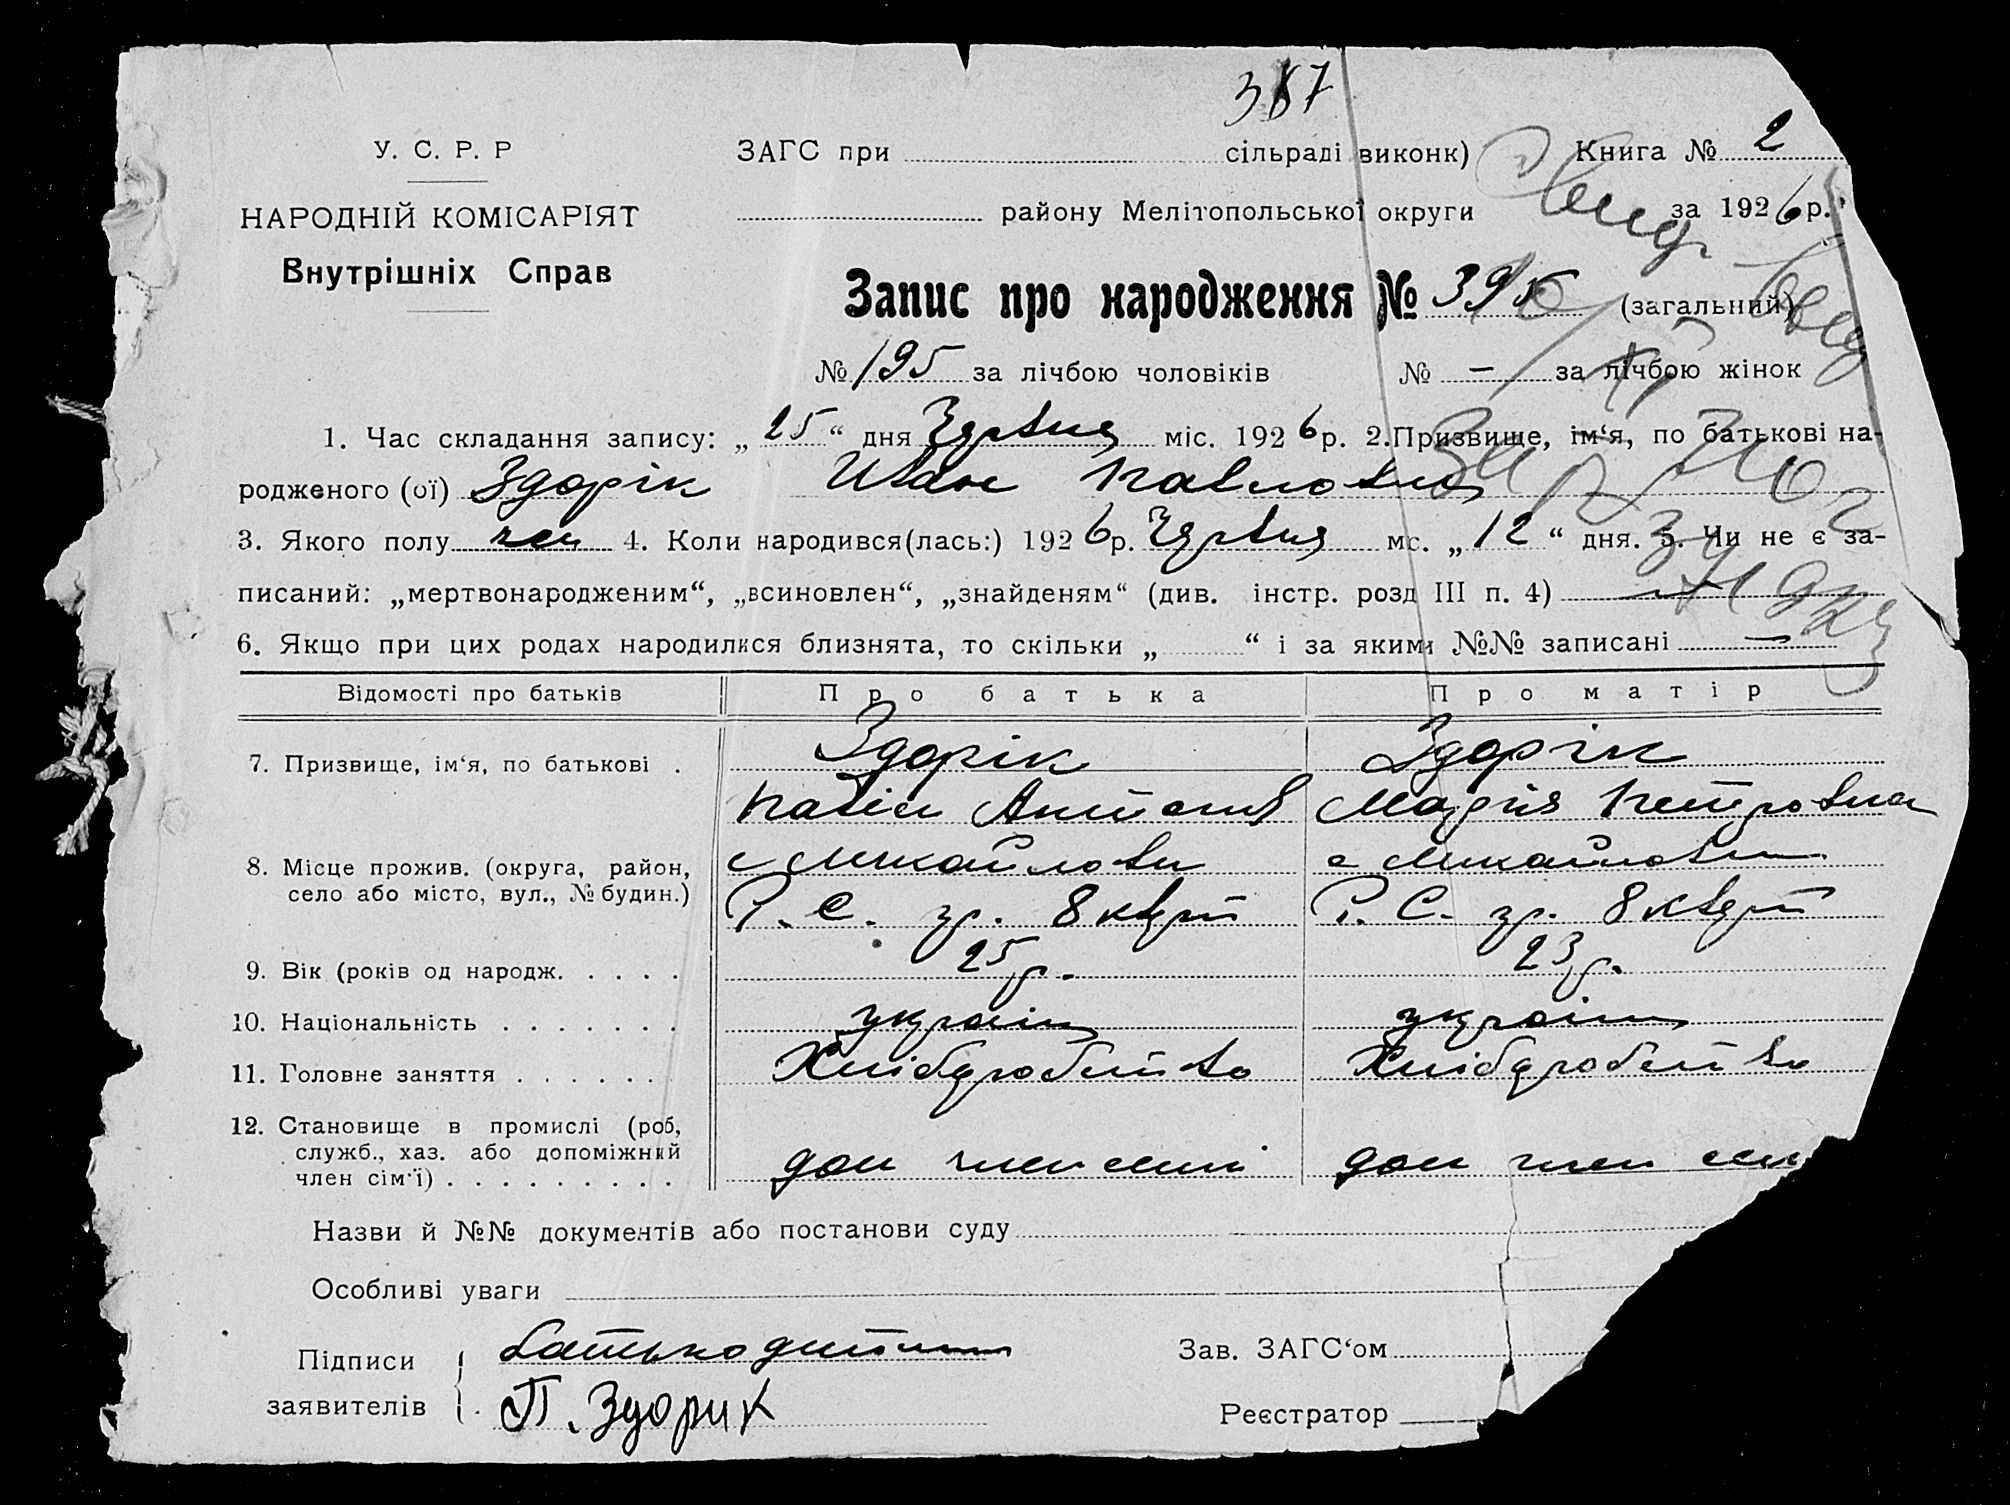 387
У. С. Р. Р
ЗАГС при сільраді виконк)
Книга № 2
НАРОДНІЙ КОМІСАРІЯТ
району Мелітопольської округи
за 1926 р.
Внутрішніх Справ
Запис про народження № 395 (загальний)
№ 195 за лічбою чоловіків № — за лічбою жінок
1. Час складання запису: „25“ дня Червня міс. 1926 р. 2. Призвище, ім‘я, по батькові на-
родженого (ої) Здорік Иван Павлович
3. Якого полу чол 4. Коли народився(лась:) 1926 р. Червня мс. „12“ дня. 5. Чи не є за-
писаний: „мертвонародженим“, „всиновлен“, „знайденям“ (див. інстр. розд III п. 4) —
6. Якщо при цих родах народилися близнята, то скільки „ “ і за якими №№ записані —
Відомості про батьків Про батька Про матір
7. Призвище, ім‘я, по батькові . Здорік Здорік
Павло Антонов Марія Петровна
8. Місце прожив. (округа, район, с Михайловк с Михайловк
село або місто, вул., № будин.) Р. С. гр. 8 кварт Р. С. гр. 8 кварт
9. Вік (років од народж. . . . . 25 р. 23 р.
10. Національність . . . . . . . україн україн
11. Головне заняття . . . . . . . Хліборобство Хліборобство
12. Становище в промислі (роб,
служб., хаз. або допоміжний
член сім‘ї) . . . . . . . . . доп член семі доп член сем
Назви й №№ документів або постанови суду
Особливі уваги
Підписи батько дитини Зав. ЗАГС‘ом
заявителів П. Здорик Реєстратор